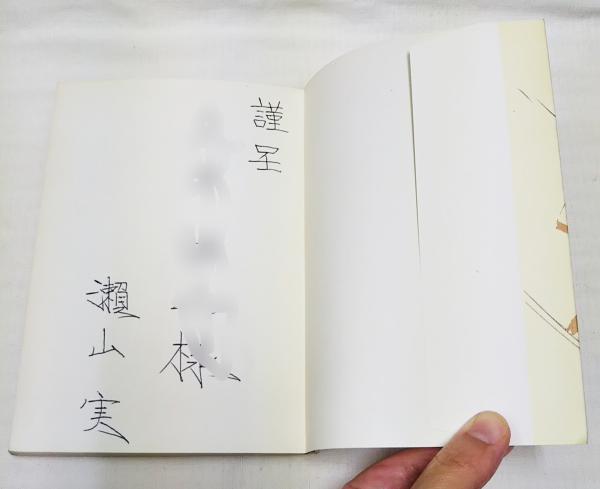 謹呈
様
瀬山実